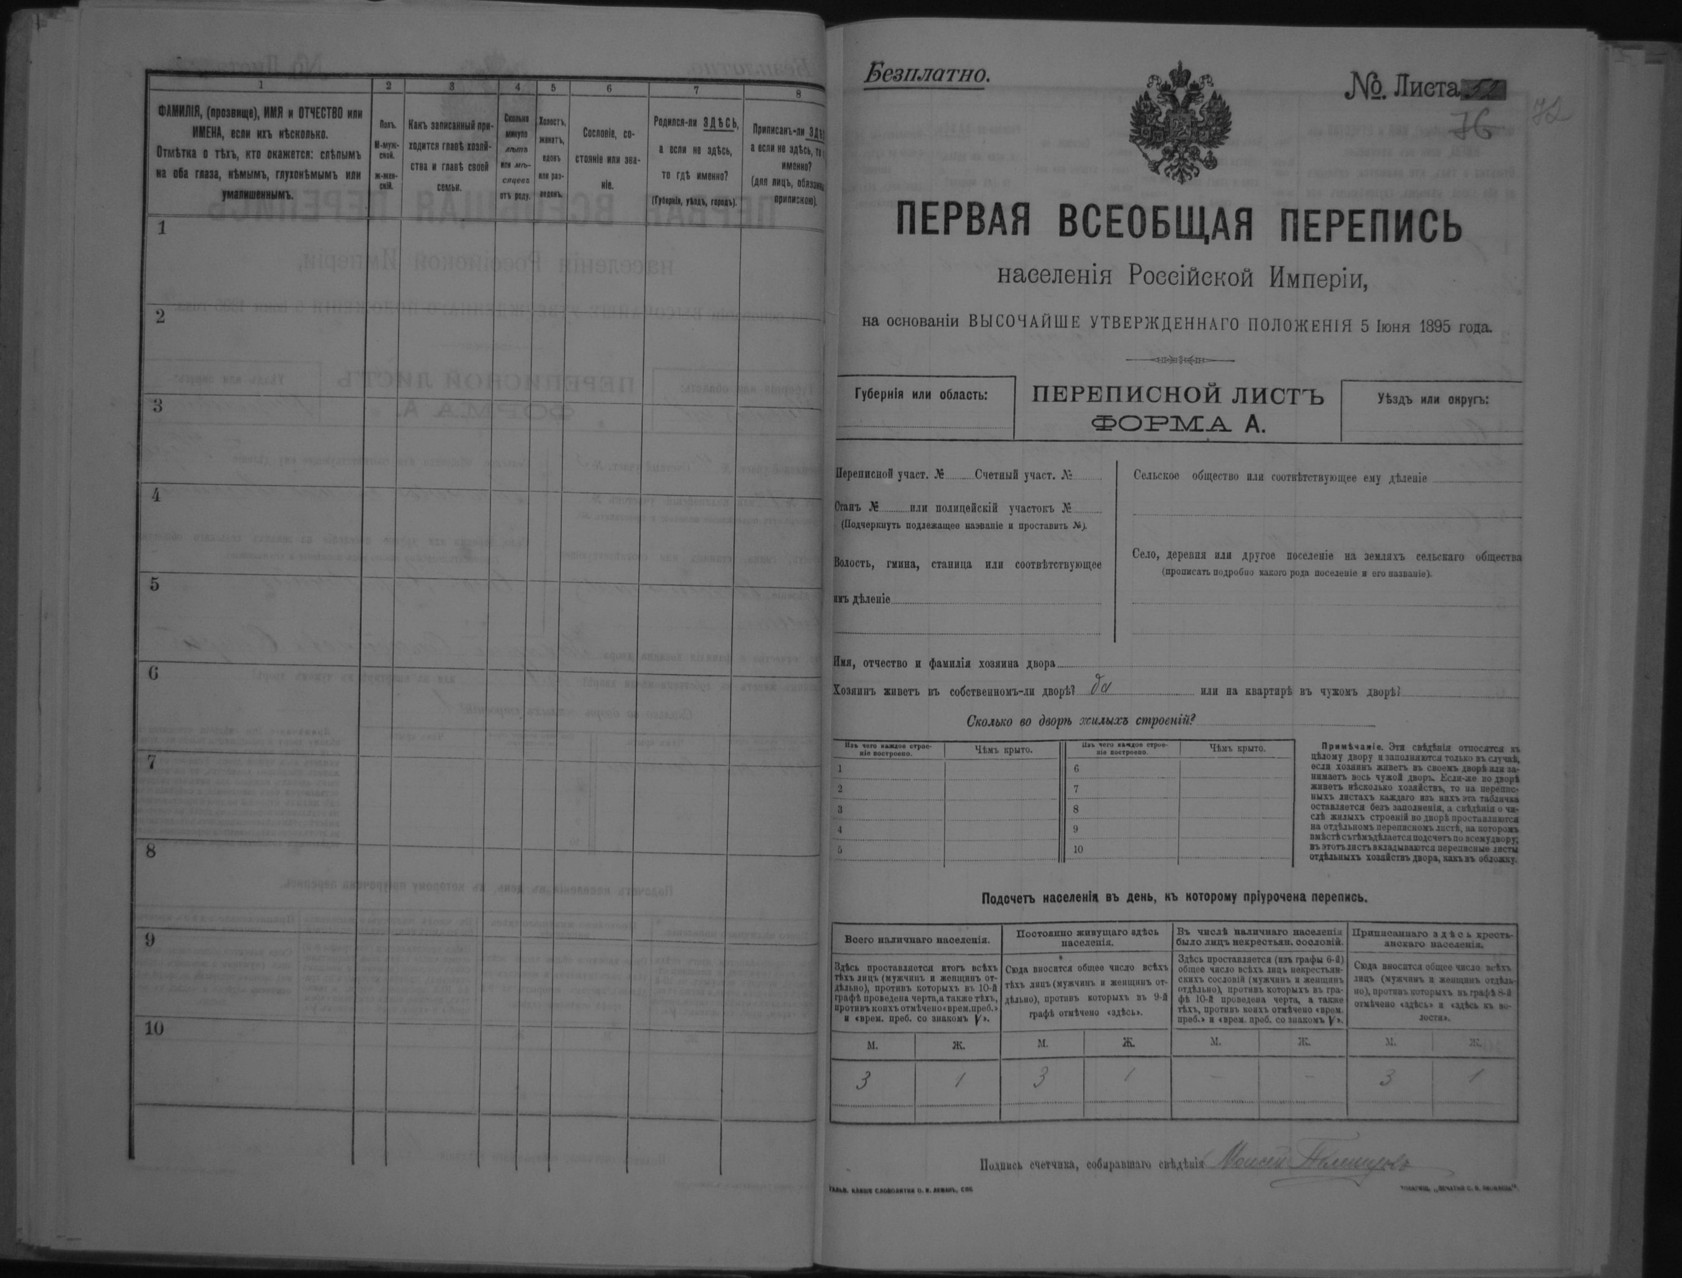 1 2 3 4 5 6 7 8
ФАМИЛІЯ, (прозвище), ИМЯ и ОТЧЕСТВО или
ИМЕНА, если ихъ нѣсколько.
Отмѣтка о тѣхъ, кто окажется: слѣпымъ
на оба глаза, нѣмымъ, глухонѣмымъ или
умалишеннымъ.
Полъ.
М-муж-
ской.
ж-жен-
скій.
Какъ записанный при-
ходится главѣ хозяй-
ства и главѣ своей
семьи.
Сколько
минуло
лѣтъ
или мѣ-
сяцевъ
отъ роду.
Холостъ,
женатъ,
вдовъ
или раз-
веденъ.
Сословіе, со-
стояніе или зва-
ніе.
Родился-ли ЗДѢСЬ,
а если не здѣсь,
то гдѣ именно?
(Губернія, уѣздъ, городъ).
Приписанъ-ли
а если не здѣсь,
именно?
(для лицъ,
припискою).
1
2
3
4
5
6
7
8
9
10
Безплатно.
№. Листа
76
72
ПЕРВАЯ ВСЕОБЩАЯ ПЕРЕПИСЬ
населенія Россійской Имперіи,
на основаніи ВЫСОЧАЙШЕ УТВЕРЖДЕННАГО ПОЛОЖЕНІЯ 5 Іюня 1895 года.
Губернія или область:
ПЕРЕПИСНОЙ ЛИСТЪ
ФОРМА А.
Уѣздъ или округъ:
Переписной участ. № Счетный участ. №
Станъ № или полицейскій участокъ №
(Подчеркнуть подлежащее названіе и проставить №).
Волость, гмина, станица или соотвѣтствующее
имъ дѣленіе
Сельское общество или соотвѣтствующее ему дѣленіе
Село, деревня или другое поселеніе на земляхъ сельскаго общества
(прописать подробно какого рода поселеніе и его названіе).
Имя, отчество и фамилія хозяина двора
Хозяинъ живетъ въ собственномъ-ли дворѣ? да или на квартирѣ въ чужомъ дворѣ?
Сколько во дворѣ жилыхъ строеній?
Изъ чего каждое строе-
ніе построено.
Чѣмъ крыто.
Изъ чего каждое строе-
ніе построено.
Чѣмъ крыто.
1 6
2 7
3 8
4 9
5 10
Примѣчаніе. Эти свѣдѣнія относятся къ
цѣлому двору и заполняются только въ случаѣ,
если хозяинъ живетъ въ своемъ дворѣ или за-
нимаетъ весь чужой дворъ. Если-же во дворѣ
живетъ нѣсколько хозяйствъ, то на перепис-
ныхъ листахъ каждаго изъ нихъ эта табличка
оставляется безъ заполненія, а свѣдѣнія о чи-
слѣ жилыхъ строеній во дворѣ проставляются
на отдѣльномъ переписномъ листѣ, на которомъ
вмѣстѣ съ тѣмъ дѣлается подсчетъ по всему двору;
въ этотъ листъ вкладываются переписные листы
отдѣльныхъ хозяйствъ двора, какъ въ обложку.
Подсчетъ населенія въ день, къ которому пріурочена перепись.
Всего наличнаго населенія.
Постоянно живущаго здѣсь
населенія.
Въ числѣ наличнаго населенія
было лицъ некрестьян. сословій.
Приписаннаго здѣсь кресть-
янскаго населенія.
Здѣсь проставляется итогъ всѣхъ
тѣхъ лицъ (мужчинъ и женщинъ от-
дѣльно), противъ которыхъ въ 10-й
графѣ проведена черта, а также тѣхъ,
противъ коихъ отмѣчено «врем. преб.»
и «врем. преб. со знакомъ V».
Сюда вносится общее число всѣхъ
тѣхъ лицъ (мужчинъ и женщинъ от-
дѣльно), противъ которыхъ въ 9-й
графѣ отмѣчено «здѣсь».
Здѣсь проставляется (изъ графы 6-й)
общее число всѣхъ лицъ некрестьян-
скихъ сословій (мужчинъ и женщинъ
отдѣльно), противъ которыхъ въ гра-
фѣ 10-й проведена черта, а также
тѣхъ, противъ коихъ отмѣчено «врем.
преб.» и «врем. преб. со знакомъ V».
Сюда вносится общее число всѣхъ
лицъ (мужчинъ и женщинъ отдѣль-
но), противъ которыхъ въ графѣ 8-й
отмѣчено «здѣсь» и «здѣсь въ во-
лости».
М. Ж. М. Ж. М. Ж. М. Ж.
3 1 3 1 - - 3 1
Подпись счетчика, собиравшаго свѣдѣнія Моисей